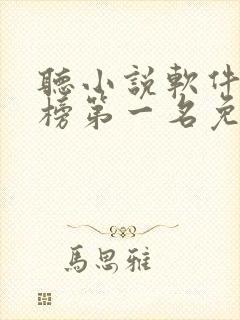 聽小說軟件
榜第一名免
馬思雅